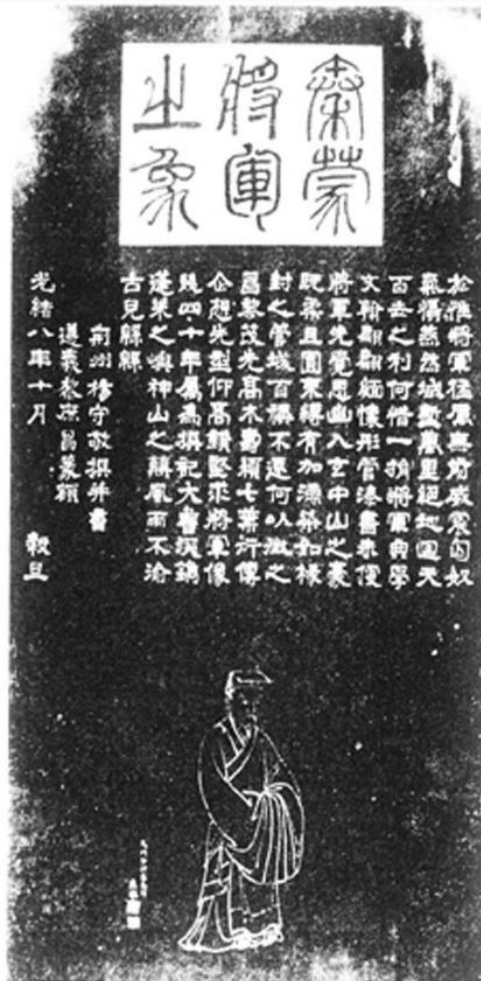 秦蒙
將軍
之象
於維將軍征厲無前威震匈奴
氣懾燕然城塹萬里絕地回天
百世之利何惜一捐將軍典學
文翰翩翩緬懷彤管漆書非便
將軍先覺思幽入玄中山之豪
既柔且圓束縛有加濡染如椽
封之管城百祺不遷何以徵之
昌黎茂先髙木壽穎七葉衍傳
企想先型仰髙鑽堅求將軍像
幾四十年屬為撰記大書深鐫
蓬萊之嶼神山之巔風雨不渝
古見縣縣
荊州楊守敬撰并書
遵義黎庶昌篆額
光緒八年十月 穀旦